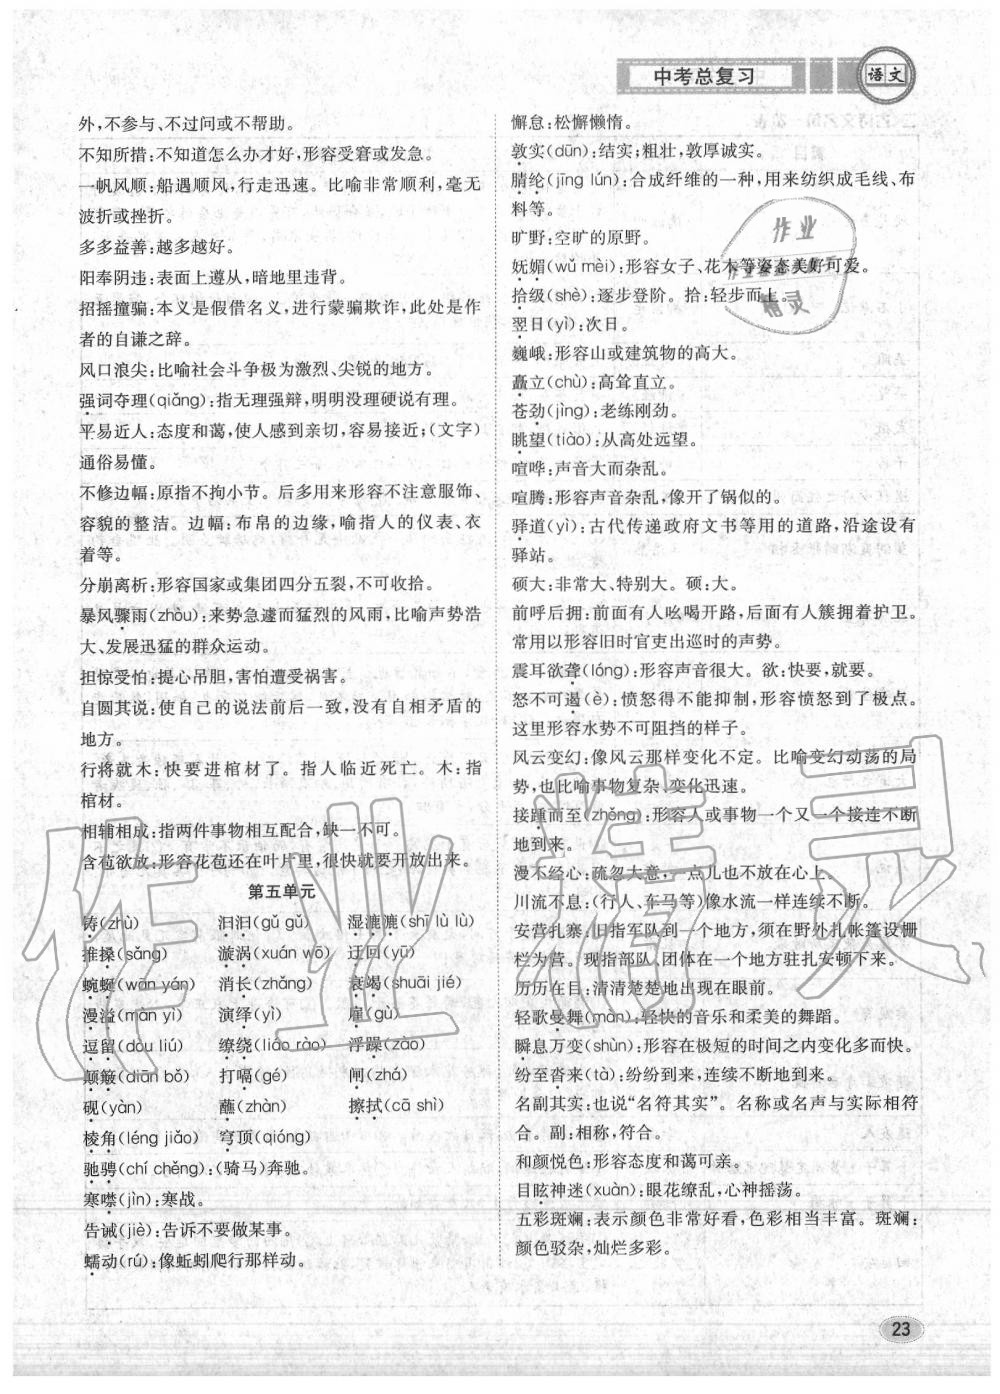 中考总复习
语文
外,不参与、不过问或不帮助。
不知所措:不知道怎么办才好,形容受窘或发急。
一帆风顺:船遇顺风,行走迅速。比喻非常顺利,毫无
波折或挫折。
多多益善:越多越好。
阳奉阴违:表面上遵从,暗地里违背。
招摇撞骗:本义是假借名义,进行蒙骗欺诈,此处是作
者的自谦之辞。
风口浪尖:比喻社会斗争极为激烈、尖锐的地方。
强词夺理(qiǎng):指无理强辩,明明没理硬说有理。
平易近人:态度和蔼,使人感到亲切,容易接近;(文字)
通俗易懂。
不修边幅:原指不拘小节。后多用来形容不注意服饰、
容貌的整洁。边幅:布帛的边缘,喻指人的仪表、衣
着等。
分崩离析:形容国家或集团四分五裂,不可收拾。
暴风骤雨(zhòu):来势急遽而猛烈的风雨,比喻声势浩
大、发展迅猛的群众运动。
担惊受怕:提心吊胆,害怕遭受祸害。
自圆其说:使自己的说法前后一致,没有自相矛盾的
地方。
行将就木:快要进棺材了。指人临近死亡。木:指
棺材。
相辅相成:指两件事物相互配合,缺一不可。
含苞欲放:形容花苞还在叶片里,很快就要开放出来。
第五单元
铸(zhù) 汩汩(gǔ gǔ) 湿漉漉(shī lù lù)
推搡(sǎng) 漩涡(xuán wō) 迂回(yū)
蜿蜒(wān yán) 消长(zhǎng) 衰竭(shuāi jié)
漫溢(màn yì) 演绎(yì) 雇(gù)
逗留(dòu liú) 缭绕(liáo rào) 浮躁(zào)
颠簸(diān bǒ) 打嗝(gé) 闸(zhá)
砚(yàn) 蘸(zhàn) 擦拭(cā shì)
棱角(léng jiǎo) 穹顶(qióng)
驰骋(chí chěng):(骑马)奔驰。
寒噤(jìn):寒战。
告诫(jiè):告诉不要做某事。
蠕动(rú):像蚯蚓爬行那样动。
懈怠:松懈懒惰。
敦实(dūn):结实;粗壮,敦厚诚实。
腈纶(jīng lún):合成纤维的一种,用来纺织成毛线、布
料等。
旷野:空旷的原野。
妩媚(wǔ mèi):形容女子、花木等姿态美好可爱。
拾级(shè):逐步登阶。拾:轻步而上。
翌日(yì):次日。
巍峨:形容山或建筑物的高大。
矗立(chù):高耸直立。
苍劲(jìng):老练刚劲。
眺望(tiào):从高处远望。
喧哗:声音大而杂乱。
喧腾:形容声音杂乱,像开了锅似的。
驿道(yì):古代传递政府文书等用的道路,沿途设有
驿站。
硕大:非常大、特别大。硕:大。
前呼后拥:前面有人吆喝开路,后面有人簇拥着护卫。
常用以形容旧时官吏出巡时的声势。
震耳欲聋(lóng):形容声音很大。欲:快要,就要。
怒不可遏(è):愤怒得不能抑制,形容愤怒到了极点。
这里形容水势不可阻挡的样子。
风云变幻:像风云那样变化不定。比喻变幻动荡的局
势,也比喻事物复杂、变化迅速。
接踵而至(zhǒng):形容人或事物一个又一个接连不断
地到来。
漫不经心:疏忽大意,一点儿也不放在心上。
川流不息:(行人、车马等)像水流一样连续不断。
安营扎寨:旧指军队到一个地方,须在野外扎帐篷设栅
栏为营。现指部队、团体在一个地方驻扎安顿下来。
历历在目:清清楚楚地出现在眼前。
轻歌曼舞(màn):轻快的音乐和柔美的舞蹈。
瞬息万变(shùn):形容在极短的时间之内变化多而快。
纷至沓来(tà):纷纷到来,连续不断地到来。
名副其实:也说“名符其实”。名称或名声与实际相符
合。副:相称,符合。
和颜悦色:形容态度和蔼可亲。
目眩神迷(xuàn):眼花缭乱,心神摇荡。
五彩斑斓:表示颜色非常好看,色彩相当丰富。斑斓:
颜色驳杂,灿烂多彩。
作业
精灵
作业精灵
23